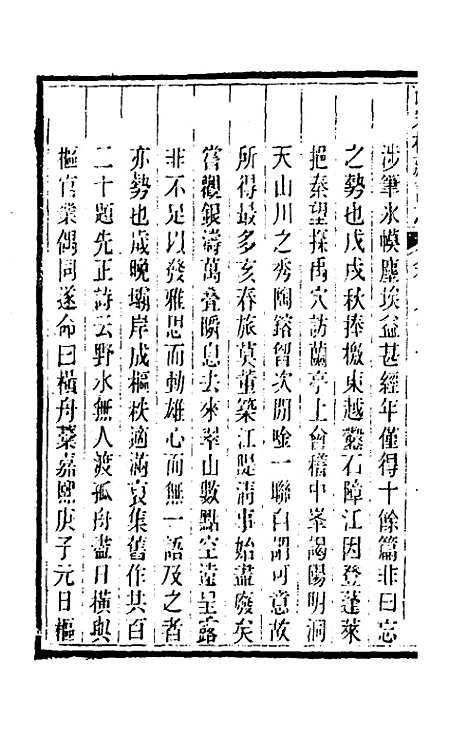 涉筆氷幙塵埃益甚經年僅得十餘篇非曰忘
之勢也戊戌秋捧檄東越鑿石障江因登蓬萊
挹秦望探禹穴訪蘭亭上會稽中峯謁陽明洞
天山川之秀陶鎔胷次閒唫一聯自謂可意故
所得最多亥春旅莫董築江隄淸事始盡廢矣
嘗觀銀濤萬疊瞬息去來翠山數點空遠呈露
非不足以發雅思而動雄心而無一語及之者
亦勢也歳晩壩岸成樞秩適滿裒集舊作共百
二十題先正詩云野水無人渡孤舟盡日橫與
樞官業偶同遂命曰橫舟藁嘉熙庚子元日樞